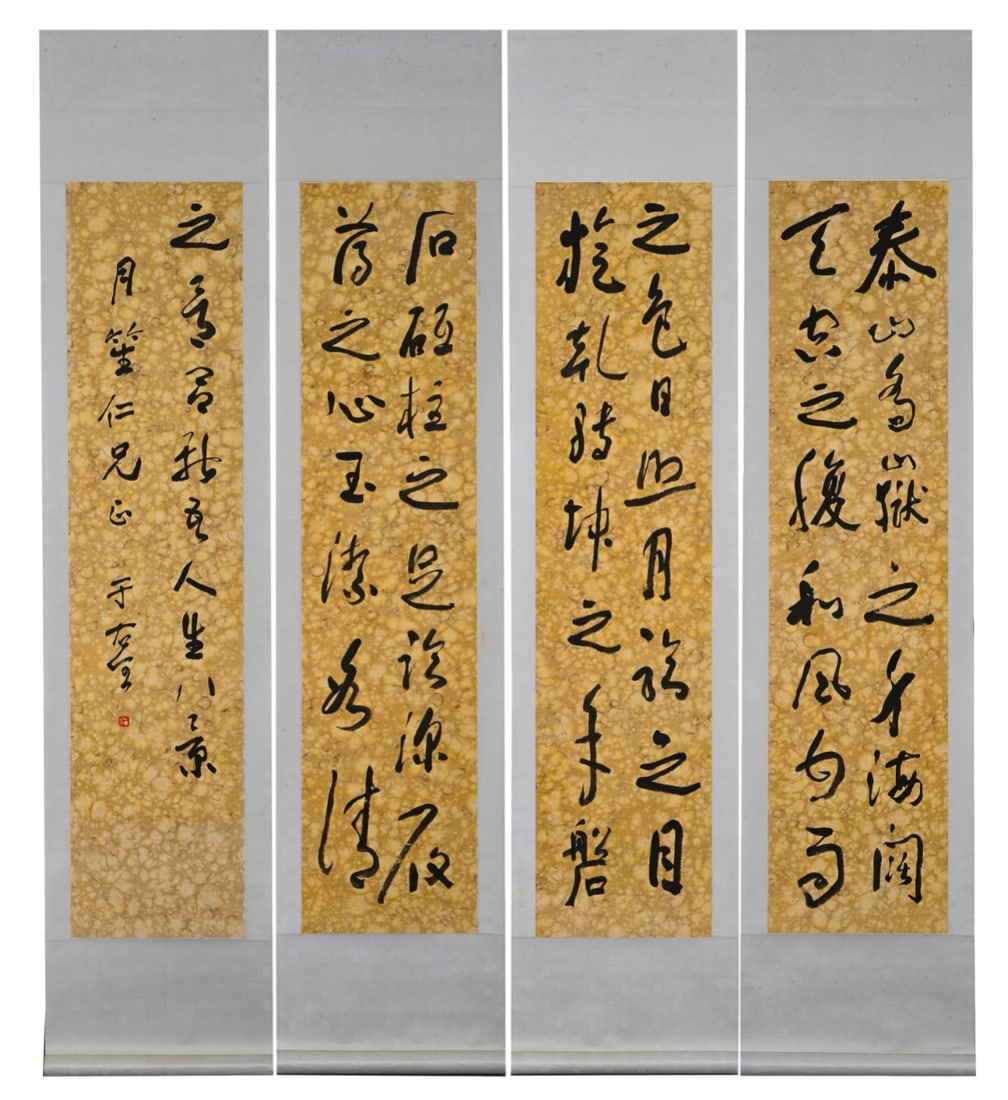 泰山喬嶽之身海闊
天空之腹和風甘雨
之色日照月臨之目
旋乾轉坤之手磐
石砥柱之足臨深履
薄之心玉潔冰清
之骨呂新吾人生八景
月笙仁兄正 于右任